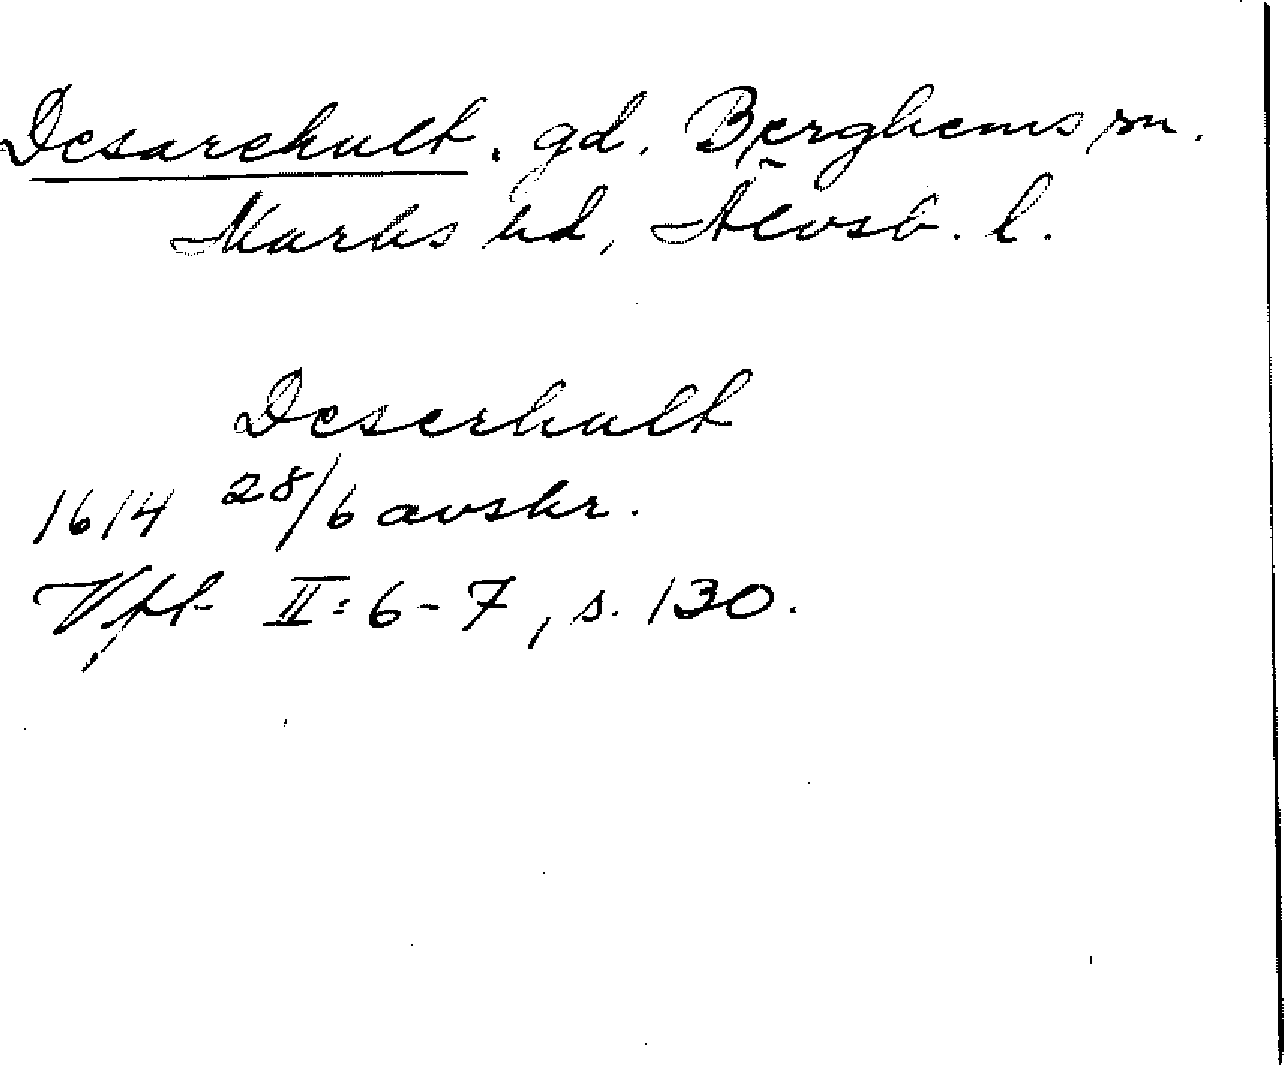 Desarehult. gd. Berghems sn.
Marks hd, Älvsb. l.
Deserhult
1614 28/6 avskr.
Vfl II:6-7, s. 130.